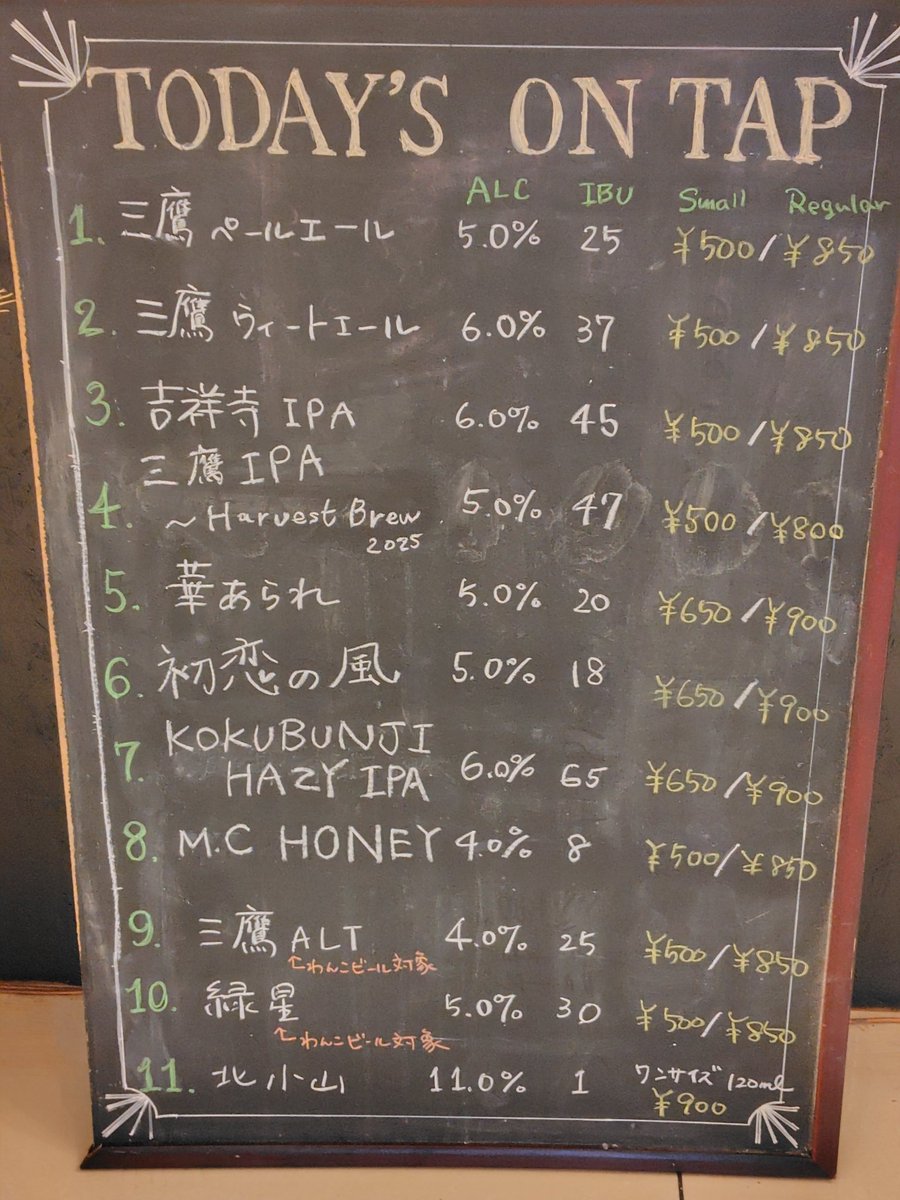 TODAY'S ON TAP
ALC IBU Small Regular
1. 三鷹 ペールエール 5.0% 25 ¥500/¥850
2. 三鷹 ウィートエール 6.0% 37 ¥500/¥850
3. 吉祥寺 IPA 6.0% 45 ¥500/¥850
三鷹 IPA
4. ~Harvest Brew 5.0% 47 ¥500/¥800
2025
5. 華あられ 5.0% 20 ¥650/¥900
6. 初恋の風 5.0% 18 ¥650/¥900
7. KOKUBUNJI
HAZY IPA 6.0% 65 ¥650/¥900
8. M.C HONEY 4.0% 8 ¥500/¥850
9. 三鷹 ALT 4.0% 25 ¥500/¥850
↑わんこビール対象
10. 緑星 5.0% 30 ¥500/¥850
↑わんこビール対象
11. 北小山 11.0% 1 ワンサイズ 120ml
¥900